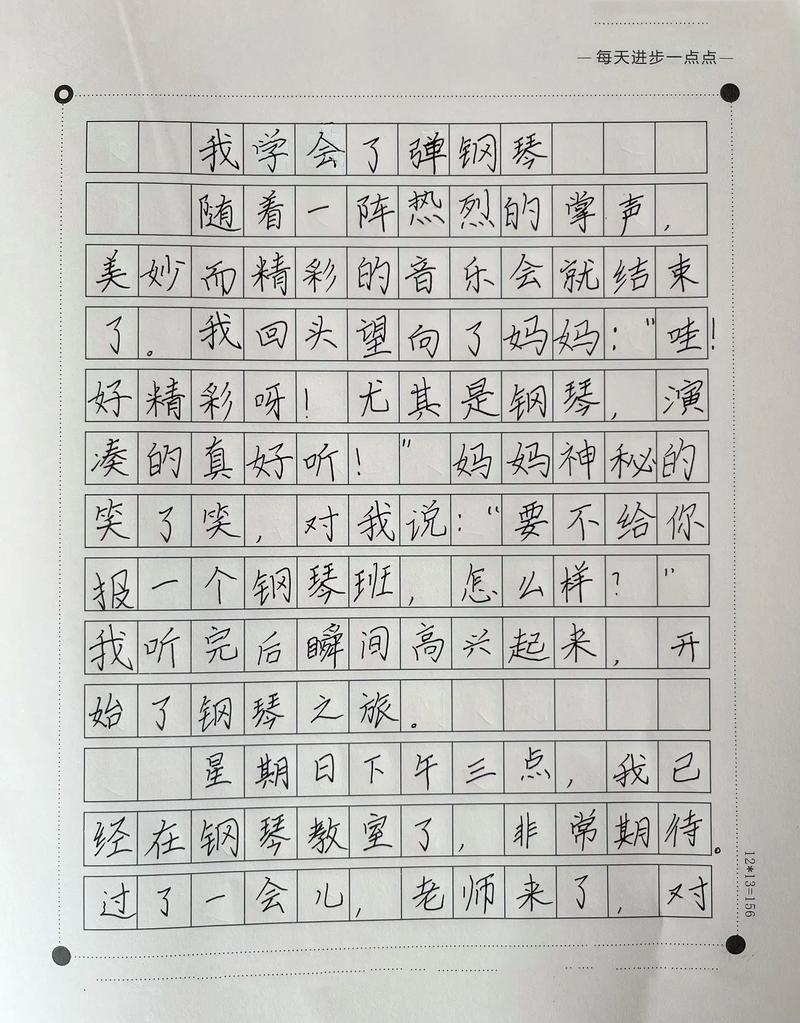 每天进步一点点
我学会了弹钢琴
随着一阵热烈的掌声，
美妙而精彩的音乐会就结束
了。我回头望向了妈妈：“哇！
好精彩呀！尤其是钢琴，演
凑的真好听！”妈妈神秘的
笑了笑，对我说：“要不给你
报一个钢琴班，怎么样？”
我听完后瞬间高兴起来，开
始了钢琴之旅。
星期日下午三点，我已
经在钢琴教室了，非常期待。
过了一会儿，老师来了，对
12*13=156